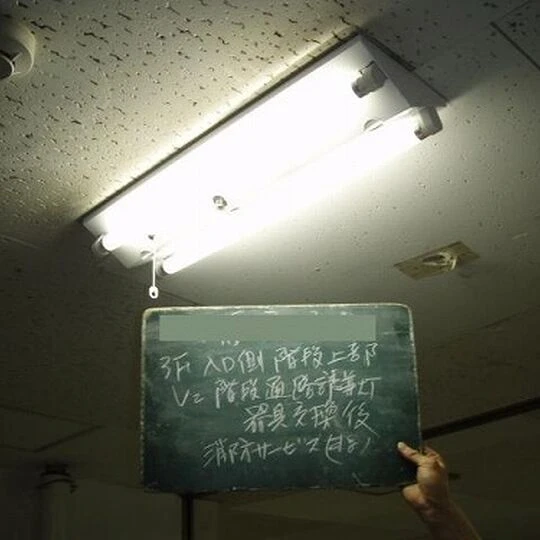 3F 入口側 階段上部
V= 階段通路誘導灯
器具交換後
消防サービス(株)